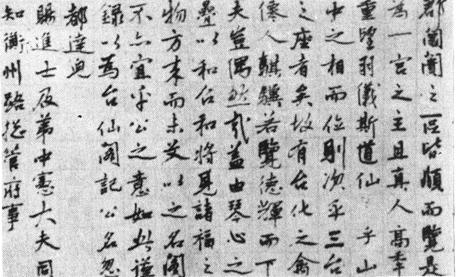 郡闤闠之區皆順而覽是
為一宮之主且真人高秀
重望羽儀斯道仙乎山
中之相而位則次乎三台
之座者矣故有台化之禽
僊人騏驥若覽德輝而下
夫豈偶然哉蓋由琴心之
疊以和台和將見諸福之
物方来而未艾以之名閣
不亦宜乎公之意如此謹
錄以為台仙閣記公名忽
都達兒
賜進士及第中憲大夫同
知衡州路揔管府事